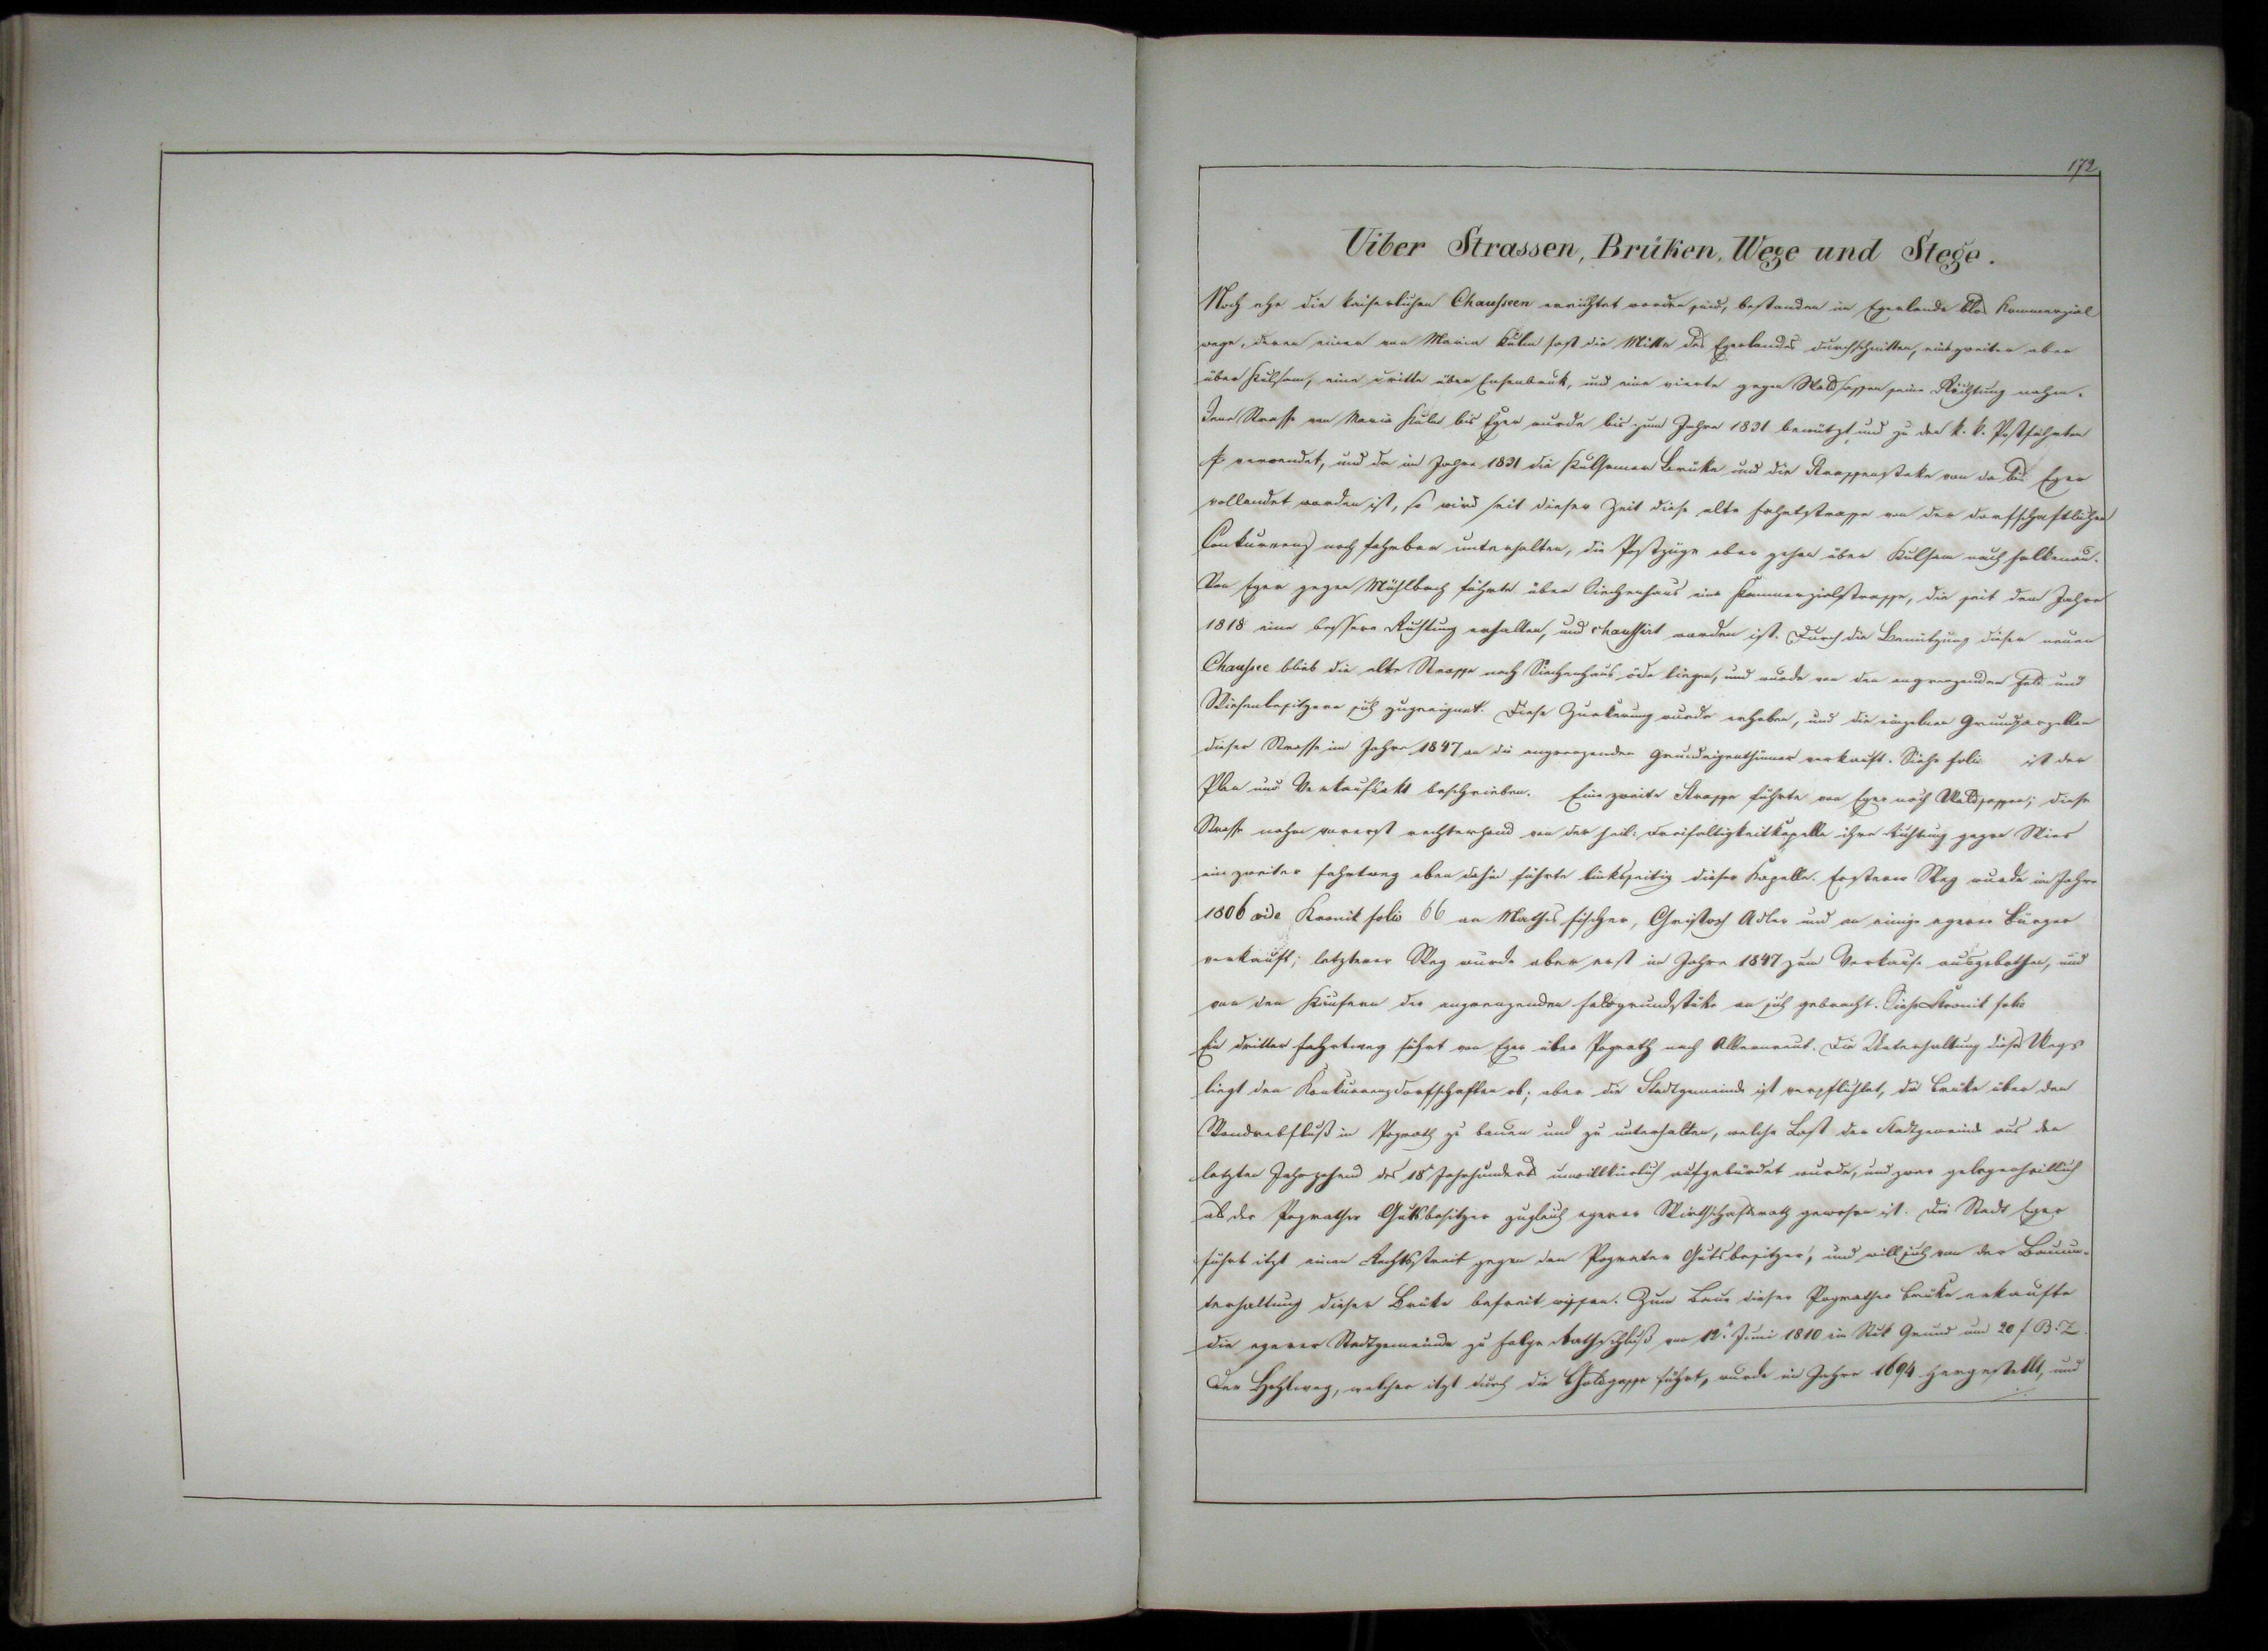 172
Uiber Strassen, Brüken, Wege und Stege.
Noch ehe die kaiserlichen Chausseen errichtet worden sind, bestanden im Egerlande blos Kommerzial
wege, deren einer von Maria Kulm fast die Mitte des Egerlandes durchschnitten, ein zweiter aber
über Kulsam, eine dritte über, und eine vierte gegen Waldsassen seine Richtung nahm.
Jene Strasse von Maria Kulm bis Eger wurde bis zum Jahre 1831 benützt, und zu den k. k. Postfahrten
verwendet, und da im Jahre 1831 die Kulsamer Brüke und die Strassenstreke von da bis Eger
vollendet worden ist, so wird seit dieser Zeit diese alte Fahrtstrasse von der dorfschaftlichen
Conkurrenz noch fahrbar unterhalten, die Postzüge aber gehen über Kulsam nach Falkenau.
Von Eger gegen Mühlbach führte über Siechenhaus eine Kommerzialstrasse, die seit dem Jahre
1818 eine bessere Richtung erhalten, und chaussirt worden ist. Durch die Benützung dieser neuen
Chaussee blieb die alte Strasse nach Siechenhaus öde liegen, und wurde von den angrenzenden Feld und
Wiesenbesitzern sich zugeeignet. Diese wurde erhoben, und die einzelnen Grundparzellen
dieser Strasse im Jahre 1847 an die angrenzenden Grundeigenthümer verkauft. Siehe folio ist der
Plan und Verkaufsakt beschrieben. Eine zweite Strasse führte von Eger nach Waldsassen; diese
Strasse nahm vorerst rechterhand von der heil: Dreifaltigkeitkapelle ihre Richtung gegen Wies
ein zweiter Fahrtweg eben dahin führte linkseitig dieser Kapelle. Ersterer Weg wurde im Jahre
1806 vide Kronik folio 66 an Mathes Fischer, Christoph Adler und an einige egerer Bürger
verkauft; letzterer Weg wurde aber erst im Jahre 1847 zum Verkaufe ausgebothen, und
von den Käufern der angrenzenden Feldgrundstüke an sich gebracht. Siehe Kronik folio
Ein dritter Fahrtweg führt von Eger über Pograth nach Albernreut. Die Unterhaltung dieses Wegs
liegt den Konkurrenzdorfschaften ob; aber die Stadtgemeinde ist verpflichtet, die Brüke über den
Wondrebfluß in Pograth zu bauen und zu unterhalten, welche Last der Stadtgemeinde aus den
letzten Jahrzehend des 18t Jahrhunderts unwillkürlich aufgebürdet wurde, und zwar gelegenheitlich
als der Pograther Gutsbesitzer zugleich egerer Wirthschaftsrath gewesen ist. Die Stadt Eger
führt itzt einen Rechtsstreit gegen den Pograter Gutsbesitzer, und will sich von der Bauun-
terhaltung dieser Brüke befreit wissen. Zum Baue dieser Pograther Brüke erkaufte
die egerer Stadtgemeinde zu Folge Rathsschluß vom 12t Juni 1810 ein Stük Grund um 20 f B: Z
Der Hohlweg, welcher itzt durch die führt, wurde im Jahre 1694 hergestellt, und
./.